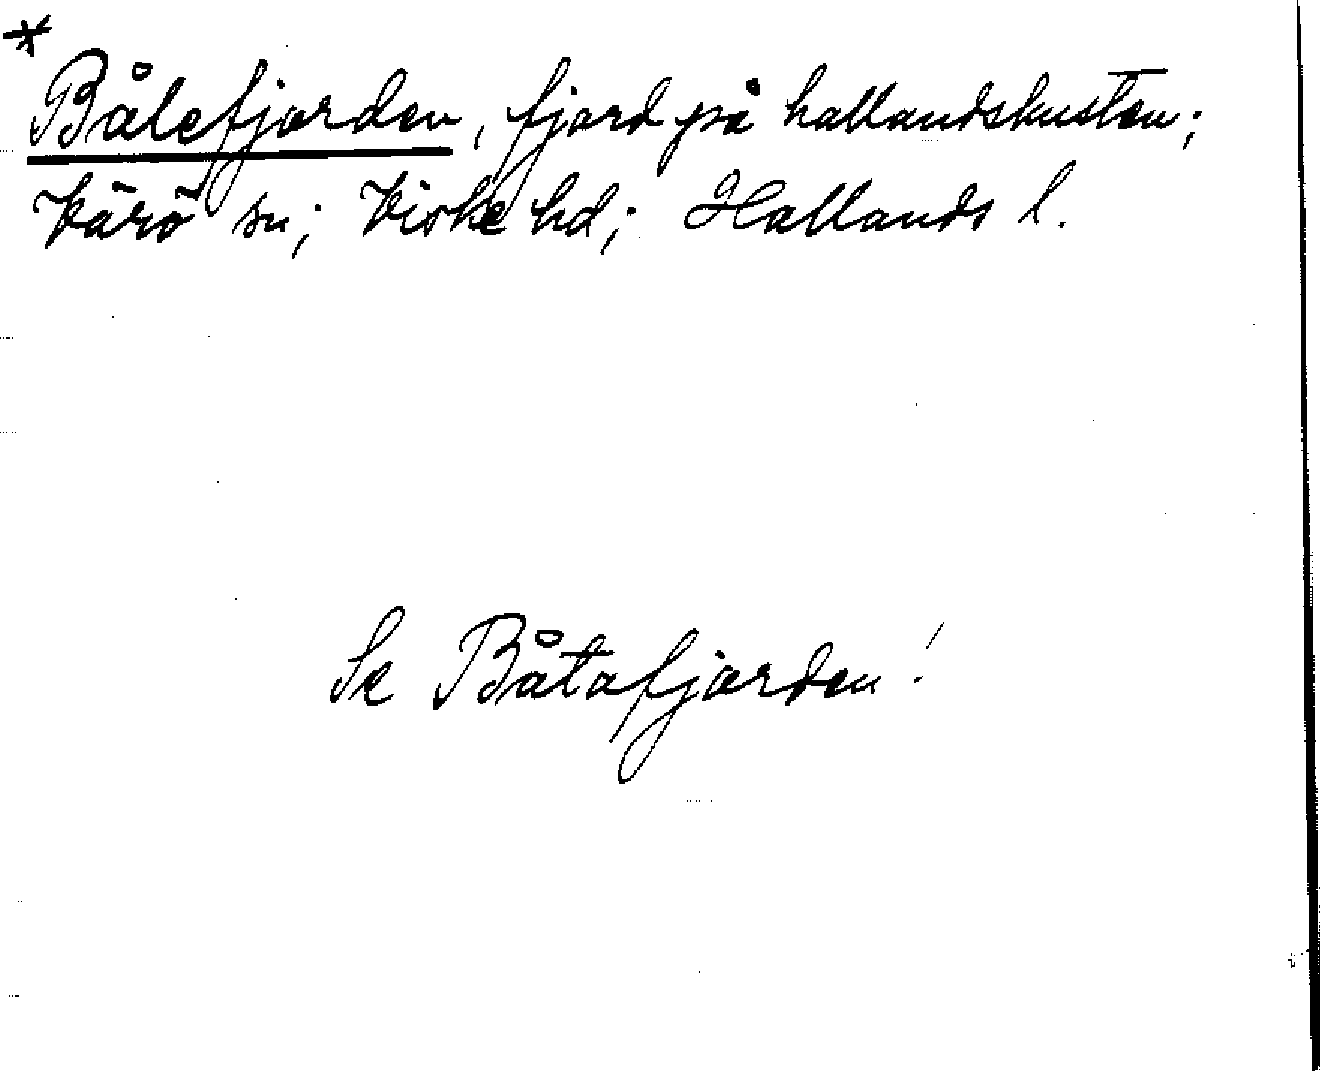 *
Bålefjorden, fjord på hallandskusten;
Värö sn; Viske hd; Hallands l.
Se Båtafjorden!